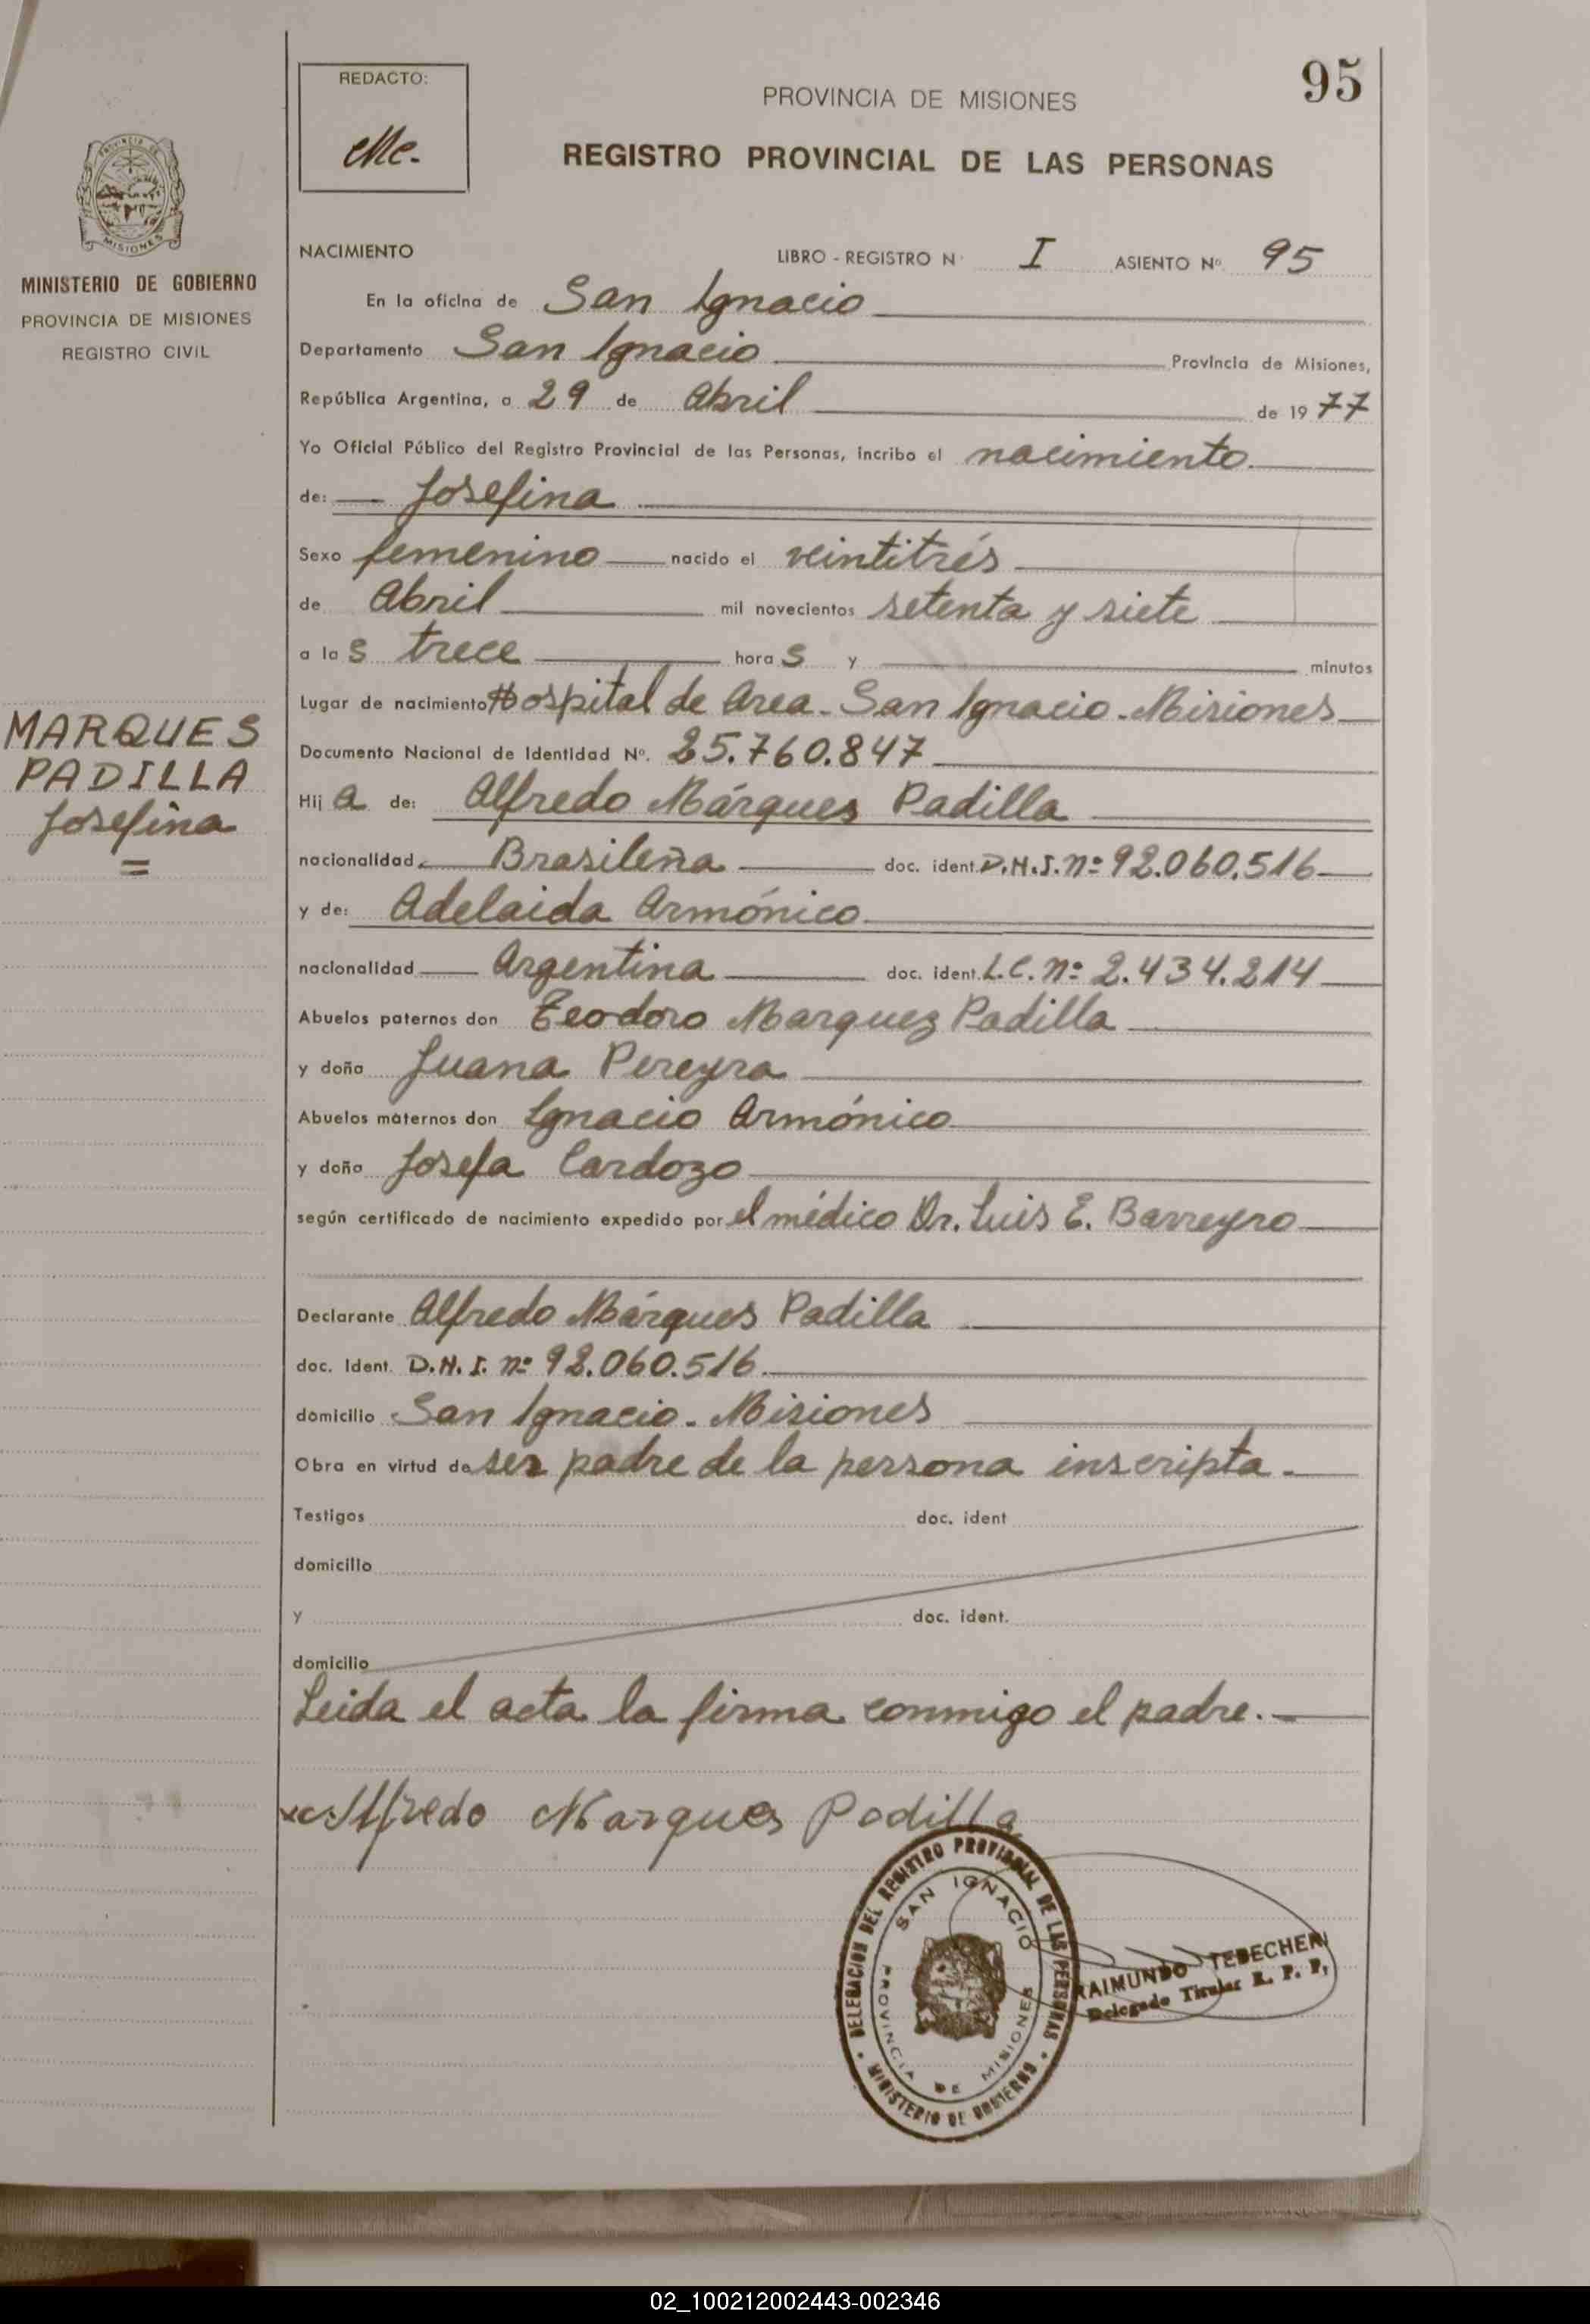 95
REDACTO:
PROVINCIA DE MISIONES
REGISTRO PROVINCIAL DE LAS PERSONAS
PROVINCIA DE MISIONES
MINISTERIO DE GOBIERNO
PROVINCIA DE MISIONES
REGISTRO CIVIL
MARQUES
PADILLA
Josefina
NACIMIENTO LIBRO - REGISTRO N° I ASIENTO Nº 95
En la oficina de San Ignacio
Departamento San Ignacio Provincia de Misiones,
República Argentina, a 29 de Abril de 1977
Yo Oficial Público del Registro Provincial de las Personas, incribo el nacimiento
de: Josefina
Sexo femenino nacido el veintitrés
de Abril mil novecientos setenta y siete
a las trece horas y minutos
Lugar de nacimiento Hospital de Area - San Ignacio - Misiones
Documento Nacional de Identidad Nº. 25.760.847
Hija de: Alfredo Márques Padilla
nacionalidad Brasileña doc. ident. D.N.I. nº 92.060.516
y de: Adelaida Armónico
nacionalidad Argentina doc. ident. L.C. nº 2.434.214
Abuelos paternos don Teodoro Marquez Padilla
y doña Juana Pereyra
Abuelos maternos don Ignacio Armónico
y doña Josefa Cardozo
según certificado de nacimiento expedido por el médico Dr. Luis E. Barreyro
Declarante Alfredo Márques Padilla
doc. Ident. D.N.I. nº 92.060.516
domicilio San Ignacio - Misiones
Obra en virtud de ser padre de la persona inscripta.-
Testigos doc. ident
domicilio
y doc. ident.
domicilio
Leida el acta la firma conmigo el padre.-
Alfredo Marques Padilla
DELEGACION DEL REGISTRO PROVINCIAL DE LAS PERSONAS
SAN IGNACIO
PROVINCIA DE MISIONES
MINISTERIO DE GOBIERNO
RAIMUNDO TEBECHERI
Delegado Titular R. P. P.
02_100212002443-002346